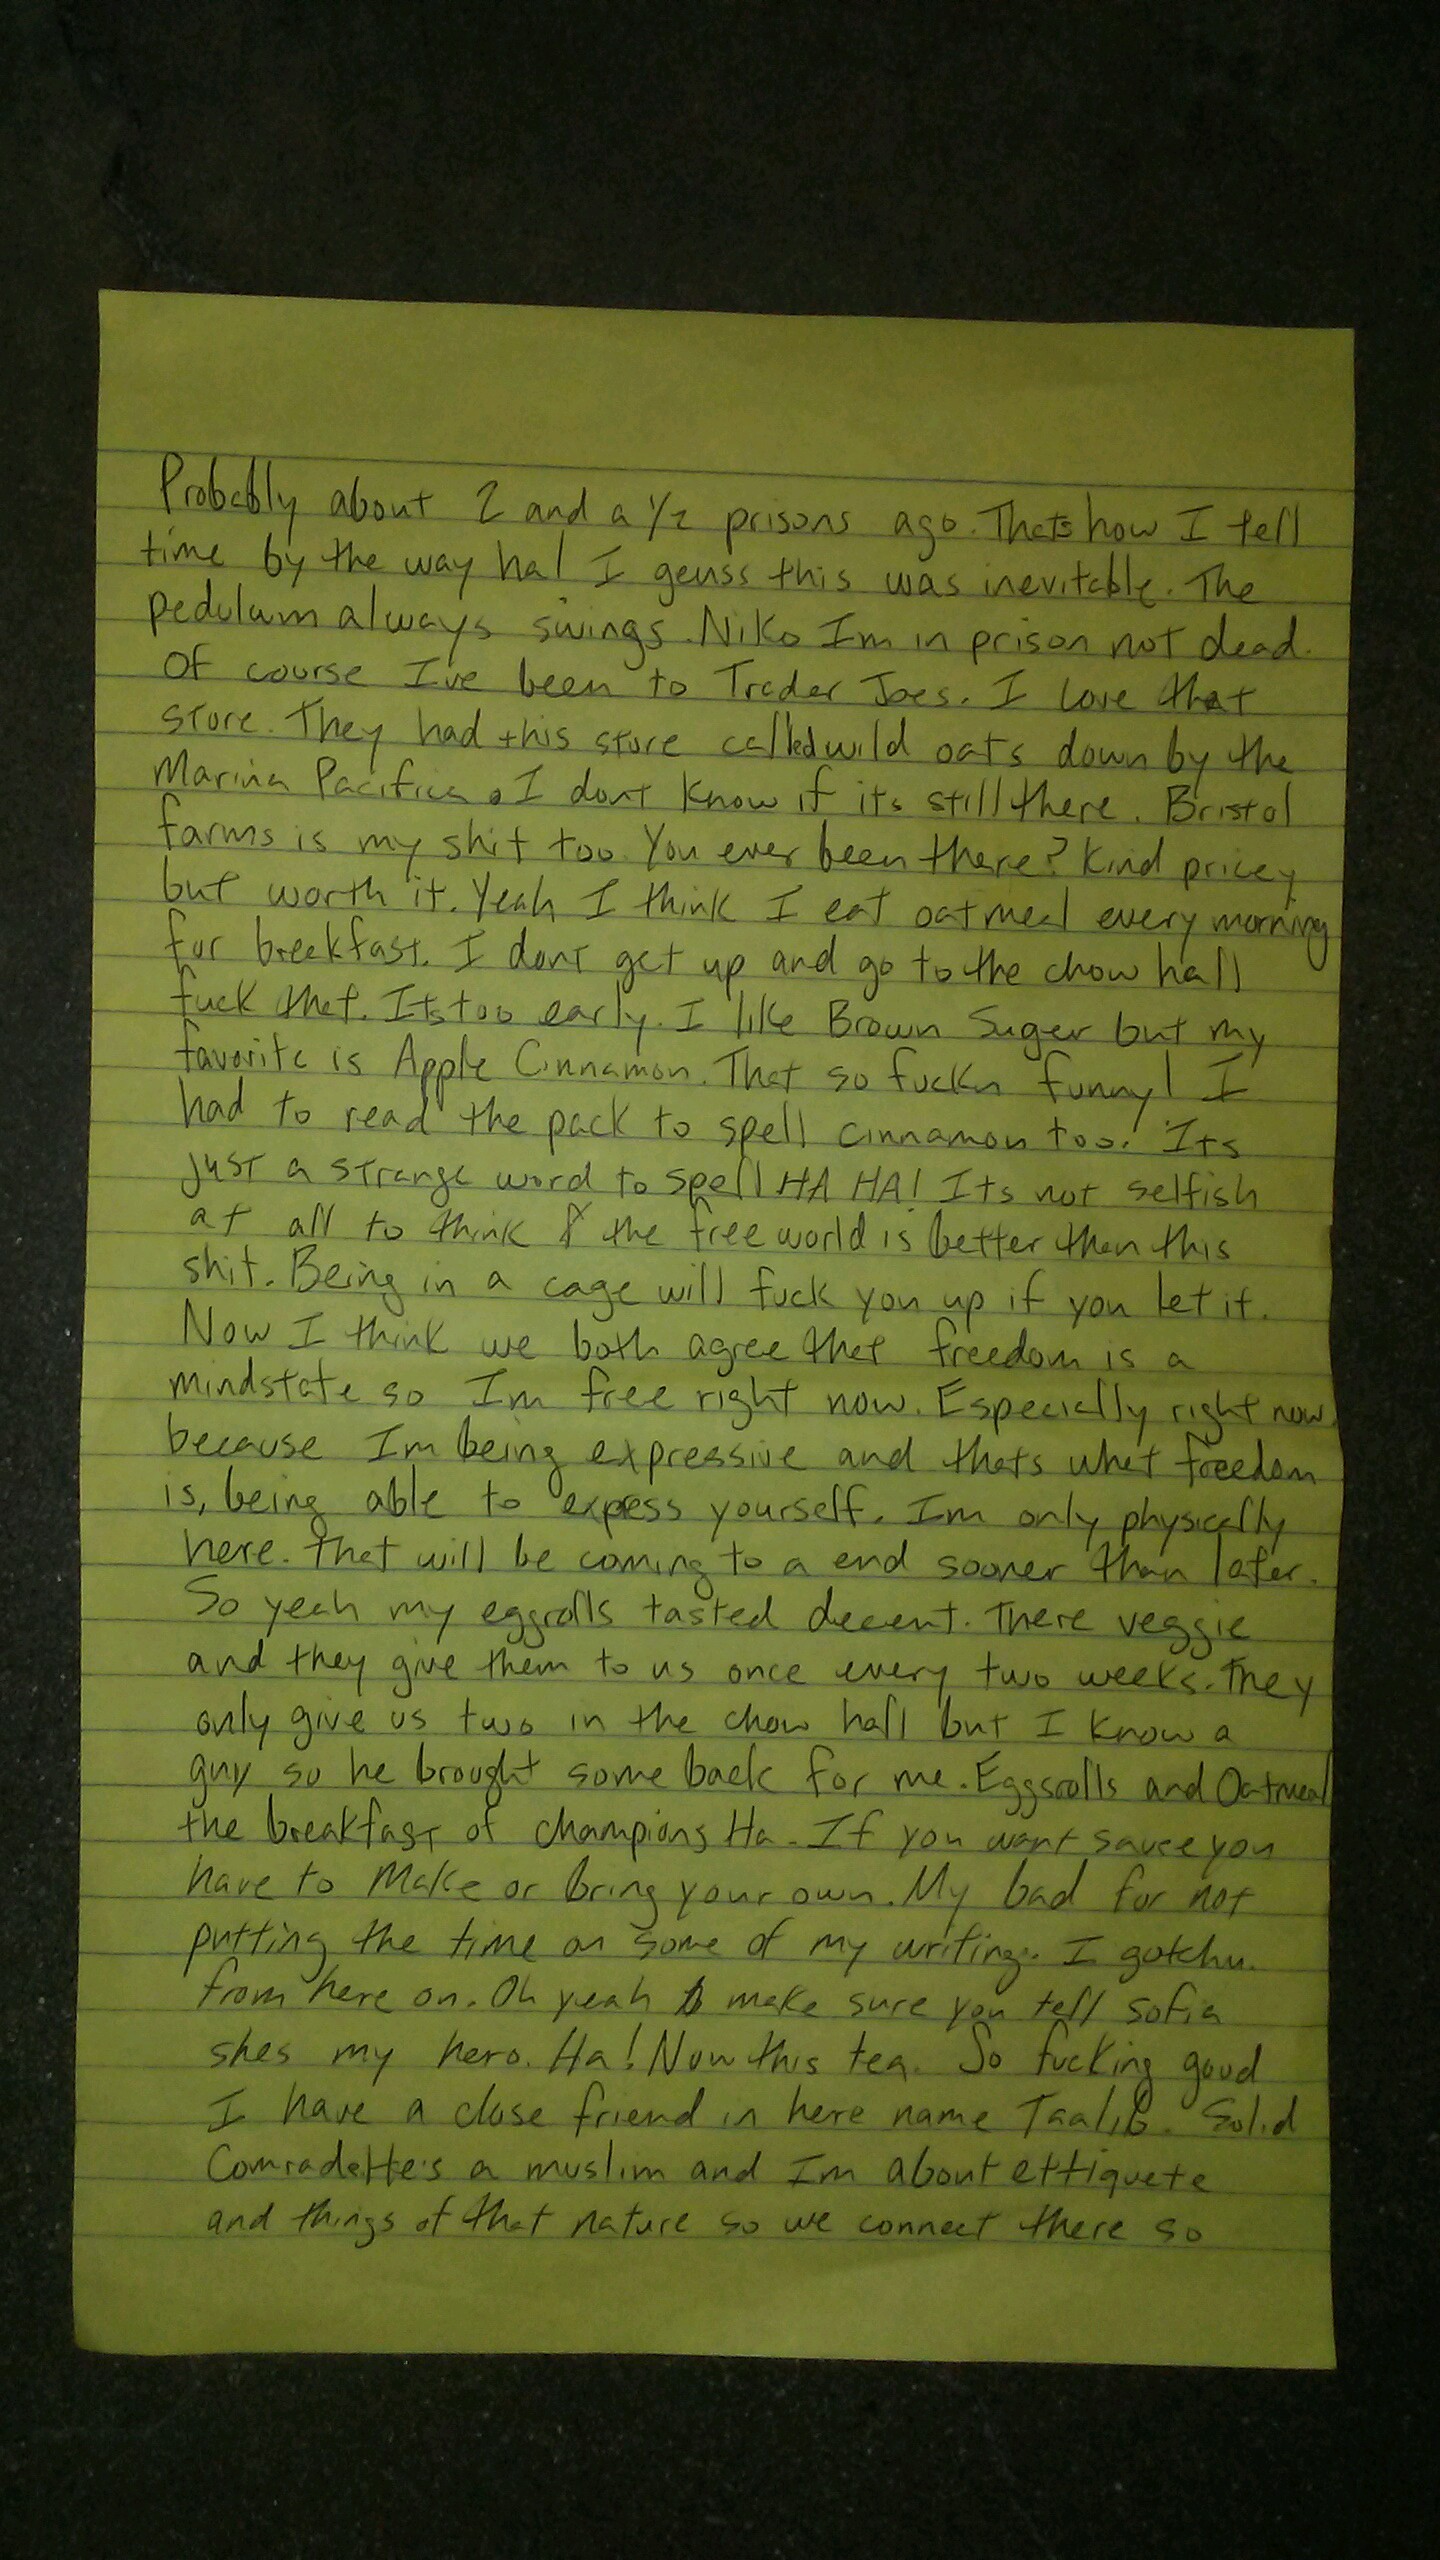 Probably about 2 and a 1/2 prisons ago. Thats how I tell
time by the way ha! I geuss this was inevitable. The
pedulum always swings. Niko Im in prison not dead.
Of course I've been to Trader Joes. I love that
store. They had this store called wild oats down by the
Marina Pacifica. I dont know if its still there. Bristol
farms is my shit too. You ever been there? Kind pricey
but worth it. Yeah I think I eat oatmeal every morning
for breakfast. I dont get up and go to the chow hall
fuck that. Its too early. I like Brown Suger but my
favorite is Apple Cinnamon. That so fuckn funny! I
had to read the pack to spell cinnamon too. Its
just a strange word to spell HA HA! Its not selfish
at all to think the free world is better then this
shit. Being in a cage will fuck you up if you let it.
Now I think we both agree that freedom is a
mindstate so Im free right now. Especially right now
because Im being expressive and thats what freedom
is, being able to express yourself. Im only physically
here. that will be coming to a end sooner than later.
So yeah my eggrolls tasted decent. There veggie
and they give them to us once every two weeks. They
only give us two in the chow hall but I know a
guy so he brought some back for me. Eggsrolls and Oatmeal
the breakfast of champions Ha. If you want sauce you
have to make or bring your own. My bad for not
putting the time on some of my writing. I gotchu
from here on. Oh yeah make sure you tell sofia
shes my hero. Ha! Now this tea. So fucking good
I have a close friend in here name Taalib. Solid
Comrade. He's a muslim and Im about ettiquete
and things of that nature so we connect there so